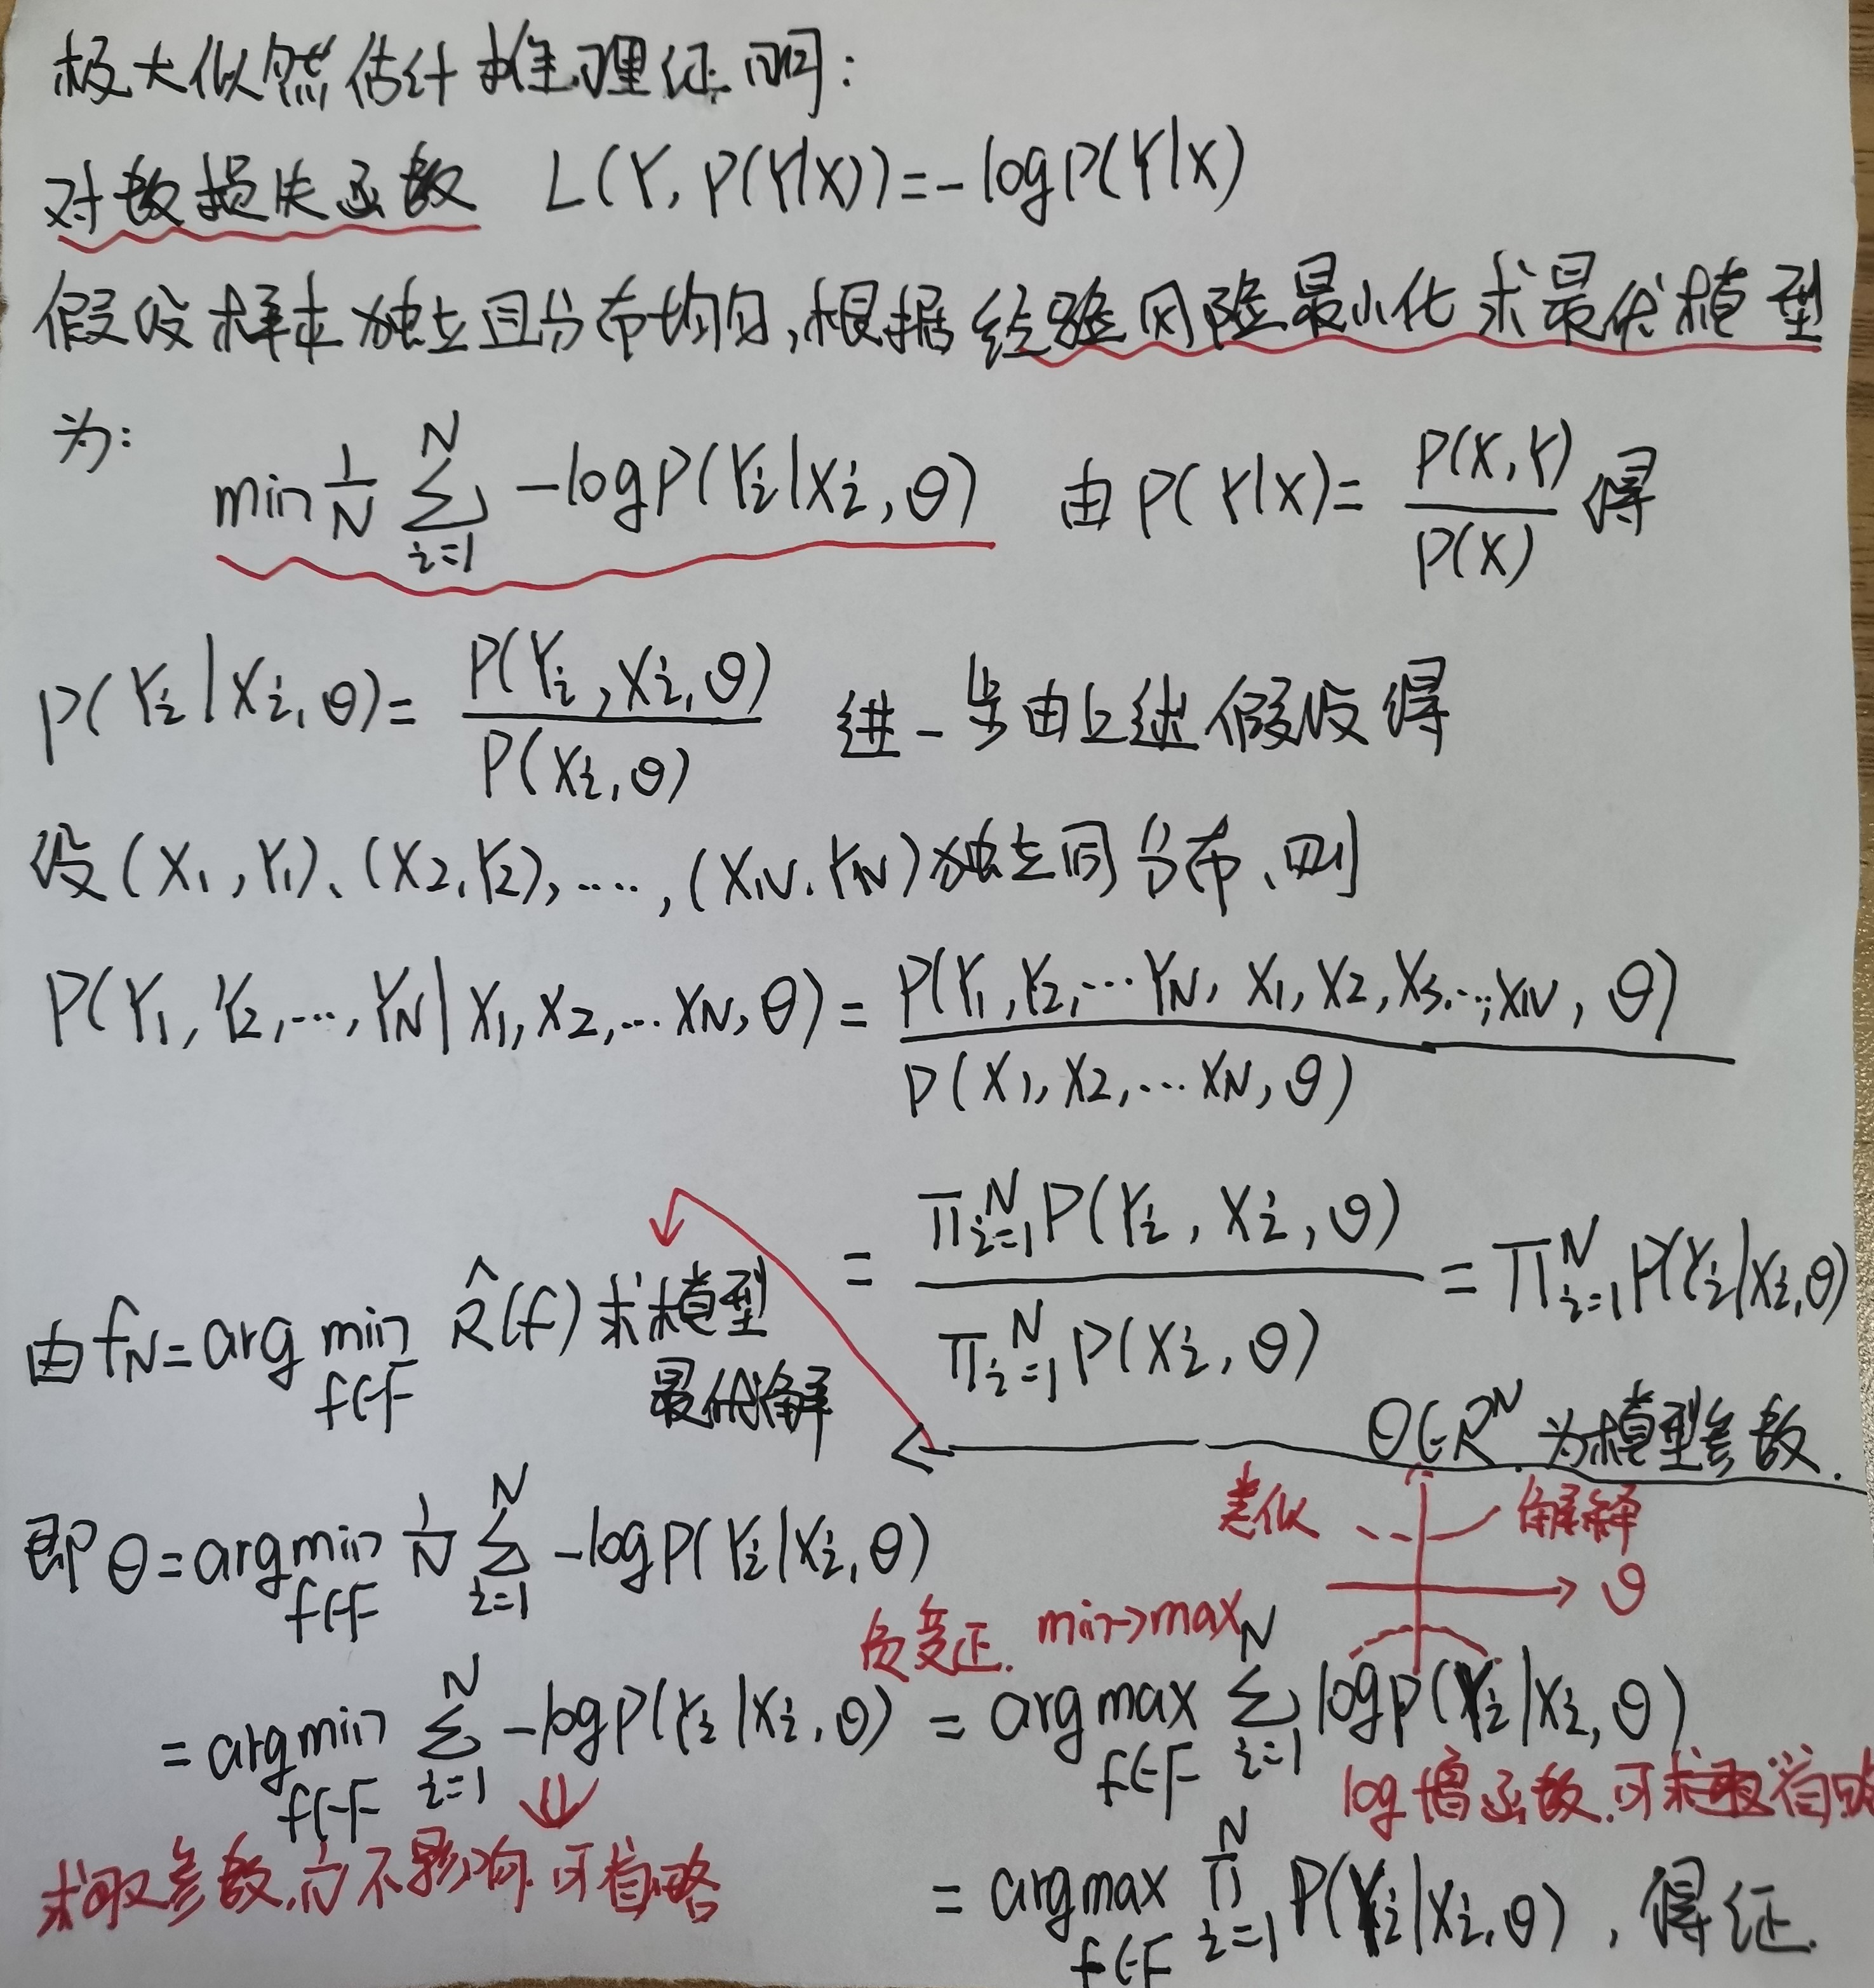 极大似然估计推理证明:
对数损失函数 L(Y, P(Y|X))=-logP(Y|X)
假设样本独立且分布均匀,根据经验风险最小化求最优模型
为: min 1/N ∑_{i=1}^{N} -logP(Yi|Xi,θ) 由P(Y|X)= P(X,Y)/P(X) 得
P(Yi|Xi,θ)= P(Yi,Xi,θ)/P(Xi,θ) 进一步由上述假设得
设(X1,Y1)、(X2,Y2),……,(XN,YN)独立同分布、则
P(Y1,Y2,…,YN|X1,X2,…XN,θ)= P(Y1,Y2,…YN, X1,X2,X3…,XN,θ)/P(X1,X2,…XN,θ)
= ∏_{i=1}^{N}P(Yi,Xi,θ)/∏_{i=1}^{N}P(Xi,θ) = ∏_{i=1}^{N}P(Yi|Xi,θ)
由fN=arg min_{f∈F} R̂(f) 求模型
最优解
θ∈R^N 为模型参数.
类似 解释
θ
即θ=argmin_{f∈F} 1/N ∑_{i=1}^{N} -logP(Yi|Xi,θ)
负变正. min→max
=argmin_{f∈F} ∑_{i=1}^{N} -logP(Yi|Xi,θ) = argmax_{f∈F} ∑_{i=1}^{N} logP(Yi|Xi,θ)
log增函数.可求取省略
求取参数,1/N不影响.可省略
= argmax_{f∈F} ∏_{i=1}^{N} P(Yi|Xi,θ) , 得证.